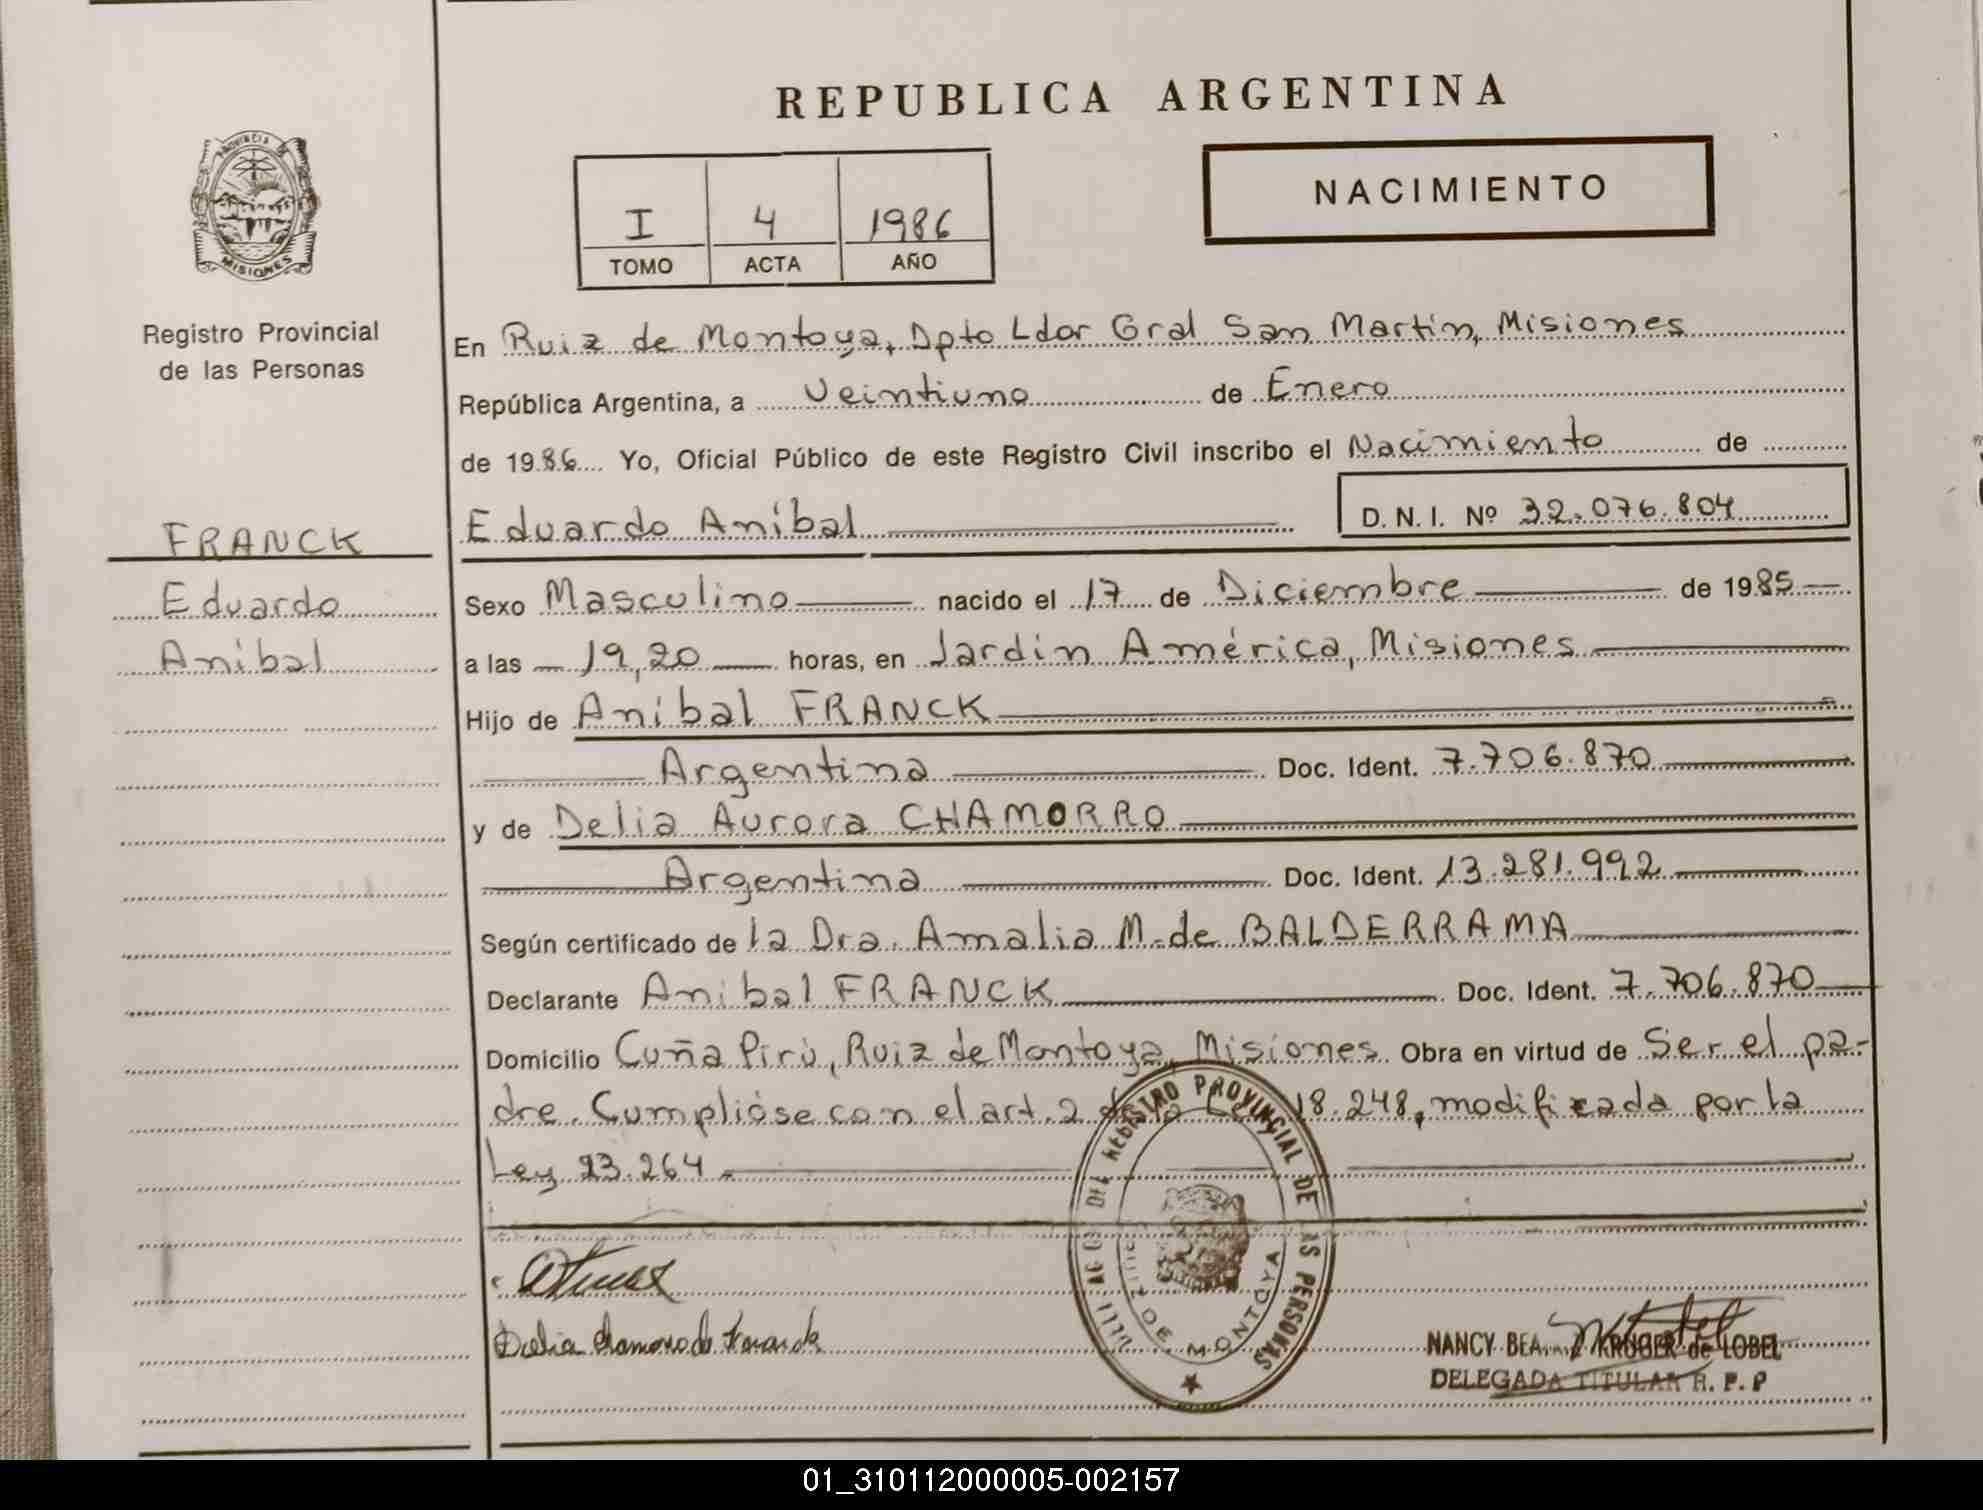 REPUBLICA ARGENTINA
PROVINCIA DE MISIONES
Registro Provincial
de las Personas
I 4 1986
TOMO ACTA AÑO
NACIMIENTO
En Ruiz de Montoya, Dpto Ldor Gral San Martín, Misiones
República Argentina, a Veintiuno de Enero
de 1986 Yo, Oficial Público de este Registro Civil inscribo el Nacimiento de
Eduardo Aníbal D.N.I. Nº 32.076.804
FRANCK
Eduardo
Aníbal
Sexo Masculino nacido el 17 de Diciembre de 1985
a las 19,20 horas, en Jardín América, Misiones
Hijo de Aníbal FRANCK
Argentina Doc. Ident. 7.706.870
y de Delia Aurora CHAMORRO
Argentina Doc. Ident. 13.281.992
Según certificado de la Dra. Amalia M. de BALDERRAMA
Declarante Aníbal FRANCK Doc. Ident. 7.706.870
Domicilio Cuña Pirú, Ruiz de Montoya, Misiones. Obra en virtud de Ser el pa-
dre. Cumplióse con el art. 2 18.248, modificada por la
Ley 23.264
REGISTRO PROVINCIAL DE LAS PERSONAS
DE MONTOYA
Delia Chamorro de Franck
NANCY BEA KRUGER de LOBEL
DELEGADA TITULAR R. P. P
01_310112000005-002157